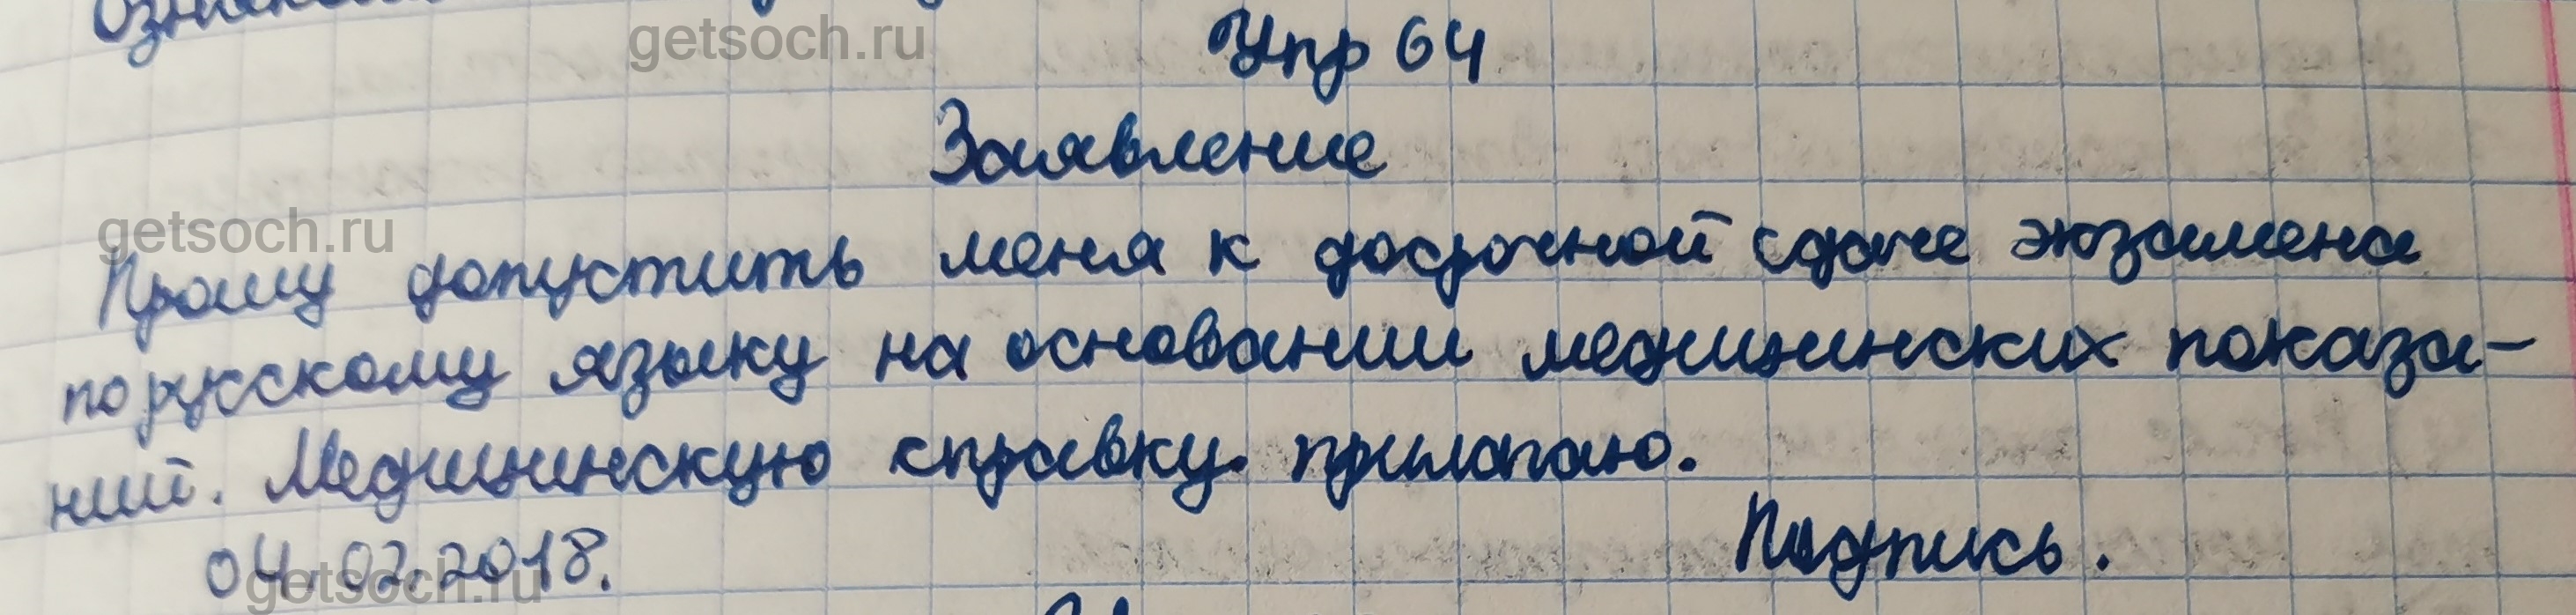 getsoch.ru
Упр 64
Заявление
getsoch.ru
Прошу допустить меня к досрочной сдаче экзамена
по русскому языку на основании медицинских показа-
ний. Медицинскую справку прилагаю.
04.02.2018.
Подпись.
getsoch.ru